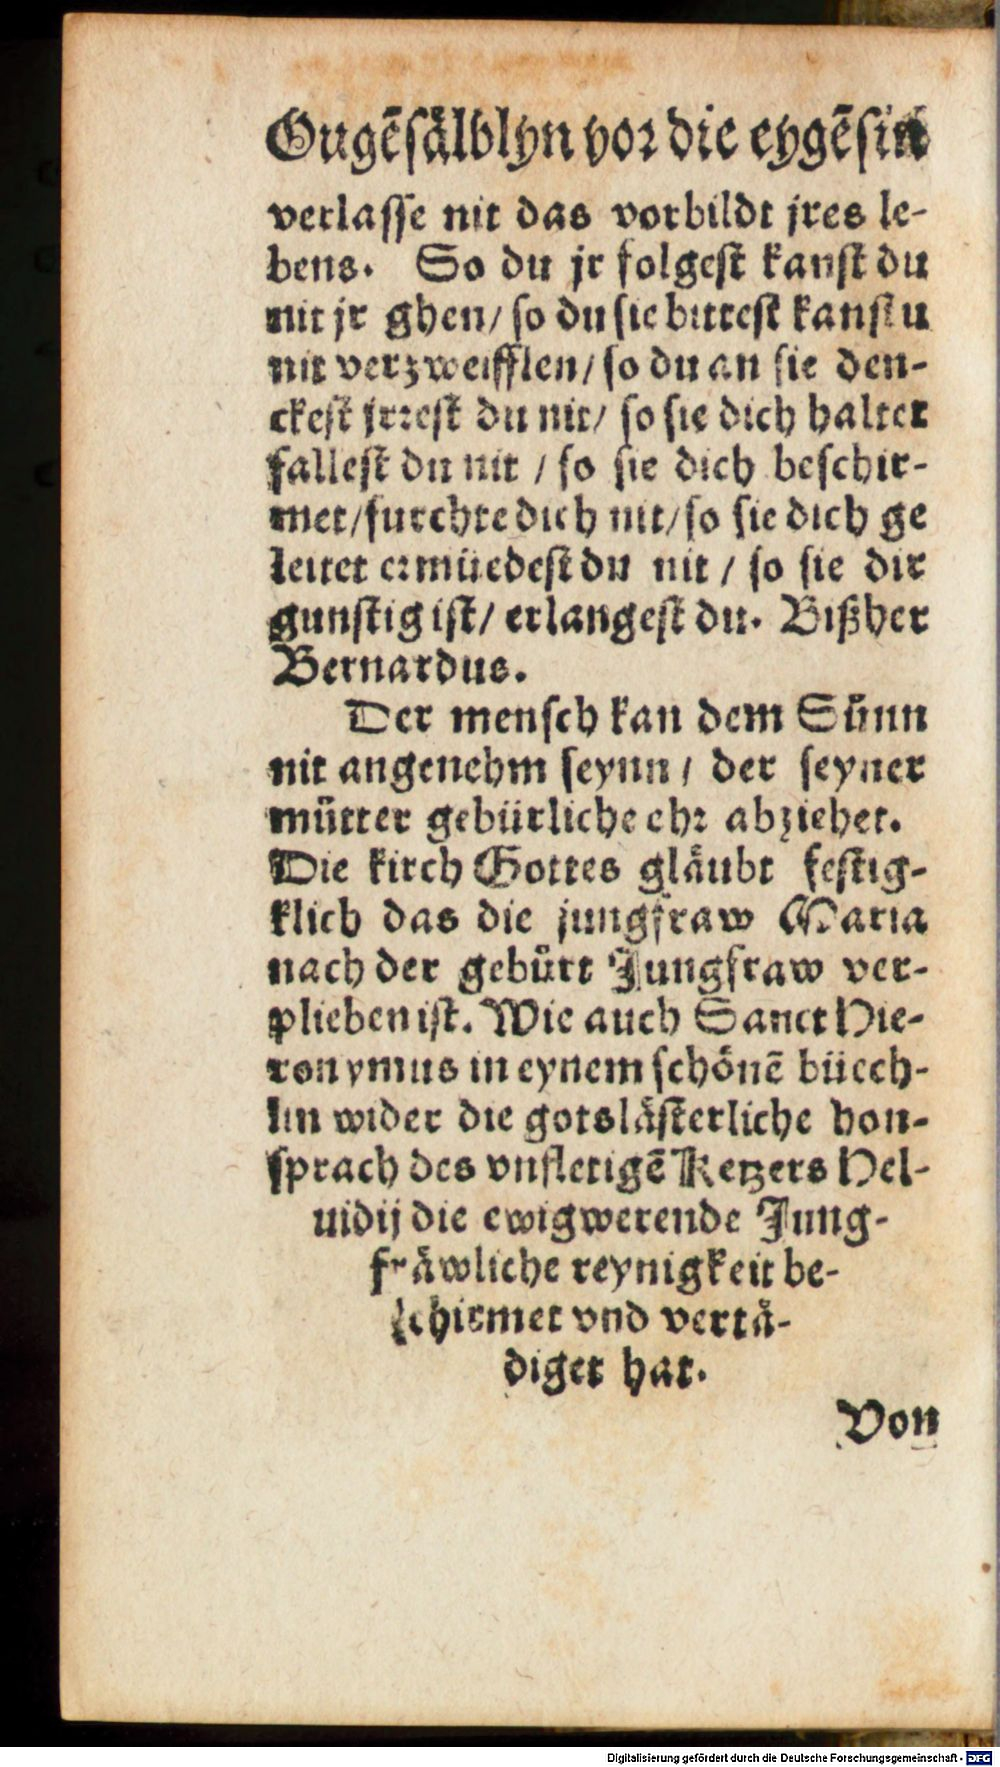 Ougẽsälblyn vor die eygẽsin
verlasse nit das vorbildt jres le-
bens. So du jr folgest kanst du
nit jr ghen/ so du sie bittest kanstu
nit verzweifflen/ so du an sie den-
ckest jrrest du nit/ so sie dich haltet
fallest du nit / so sie dich beschir-
met/furchte dich nit/so sie dich ge
leitet ermüedest du nit / so sie dir
gunstig ist/ erlangest du. Bißher
Bernardus.
Der mensch kan dem Sůnn
nit angenehm seynn / der seyner
můtter gebürliche ehr abziehet.
Die kirch Gottes glåubt festig-
klich das die jungfraw Maria
nach der gebůrt Jungfraw ver-
plieben ist. Wie auch Sanct Hie-
ronymus in eynem schönẽ büech-
lin wider die gotslåsterliche hon-
sprach des vnfletigẽ Ketzers Hel-
uidij die ewigwerende Jung-
fråwliche reynigkeit be-
schirmet vnd vertå-
diget hat.
Von
Digitalisierung gefördert durch die Deutsche Forschungsgemeinschaft - DFG